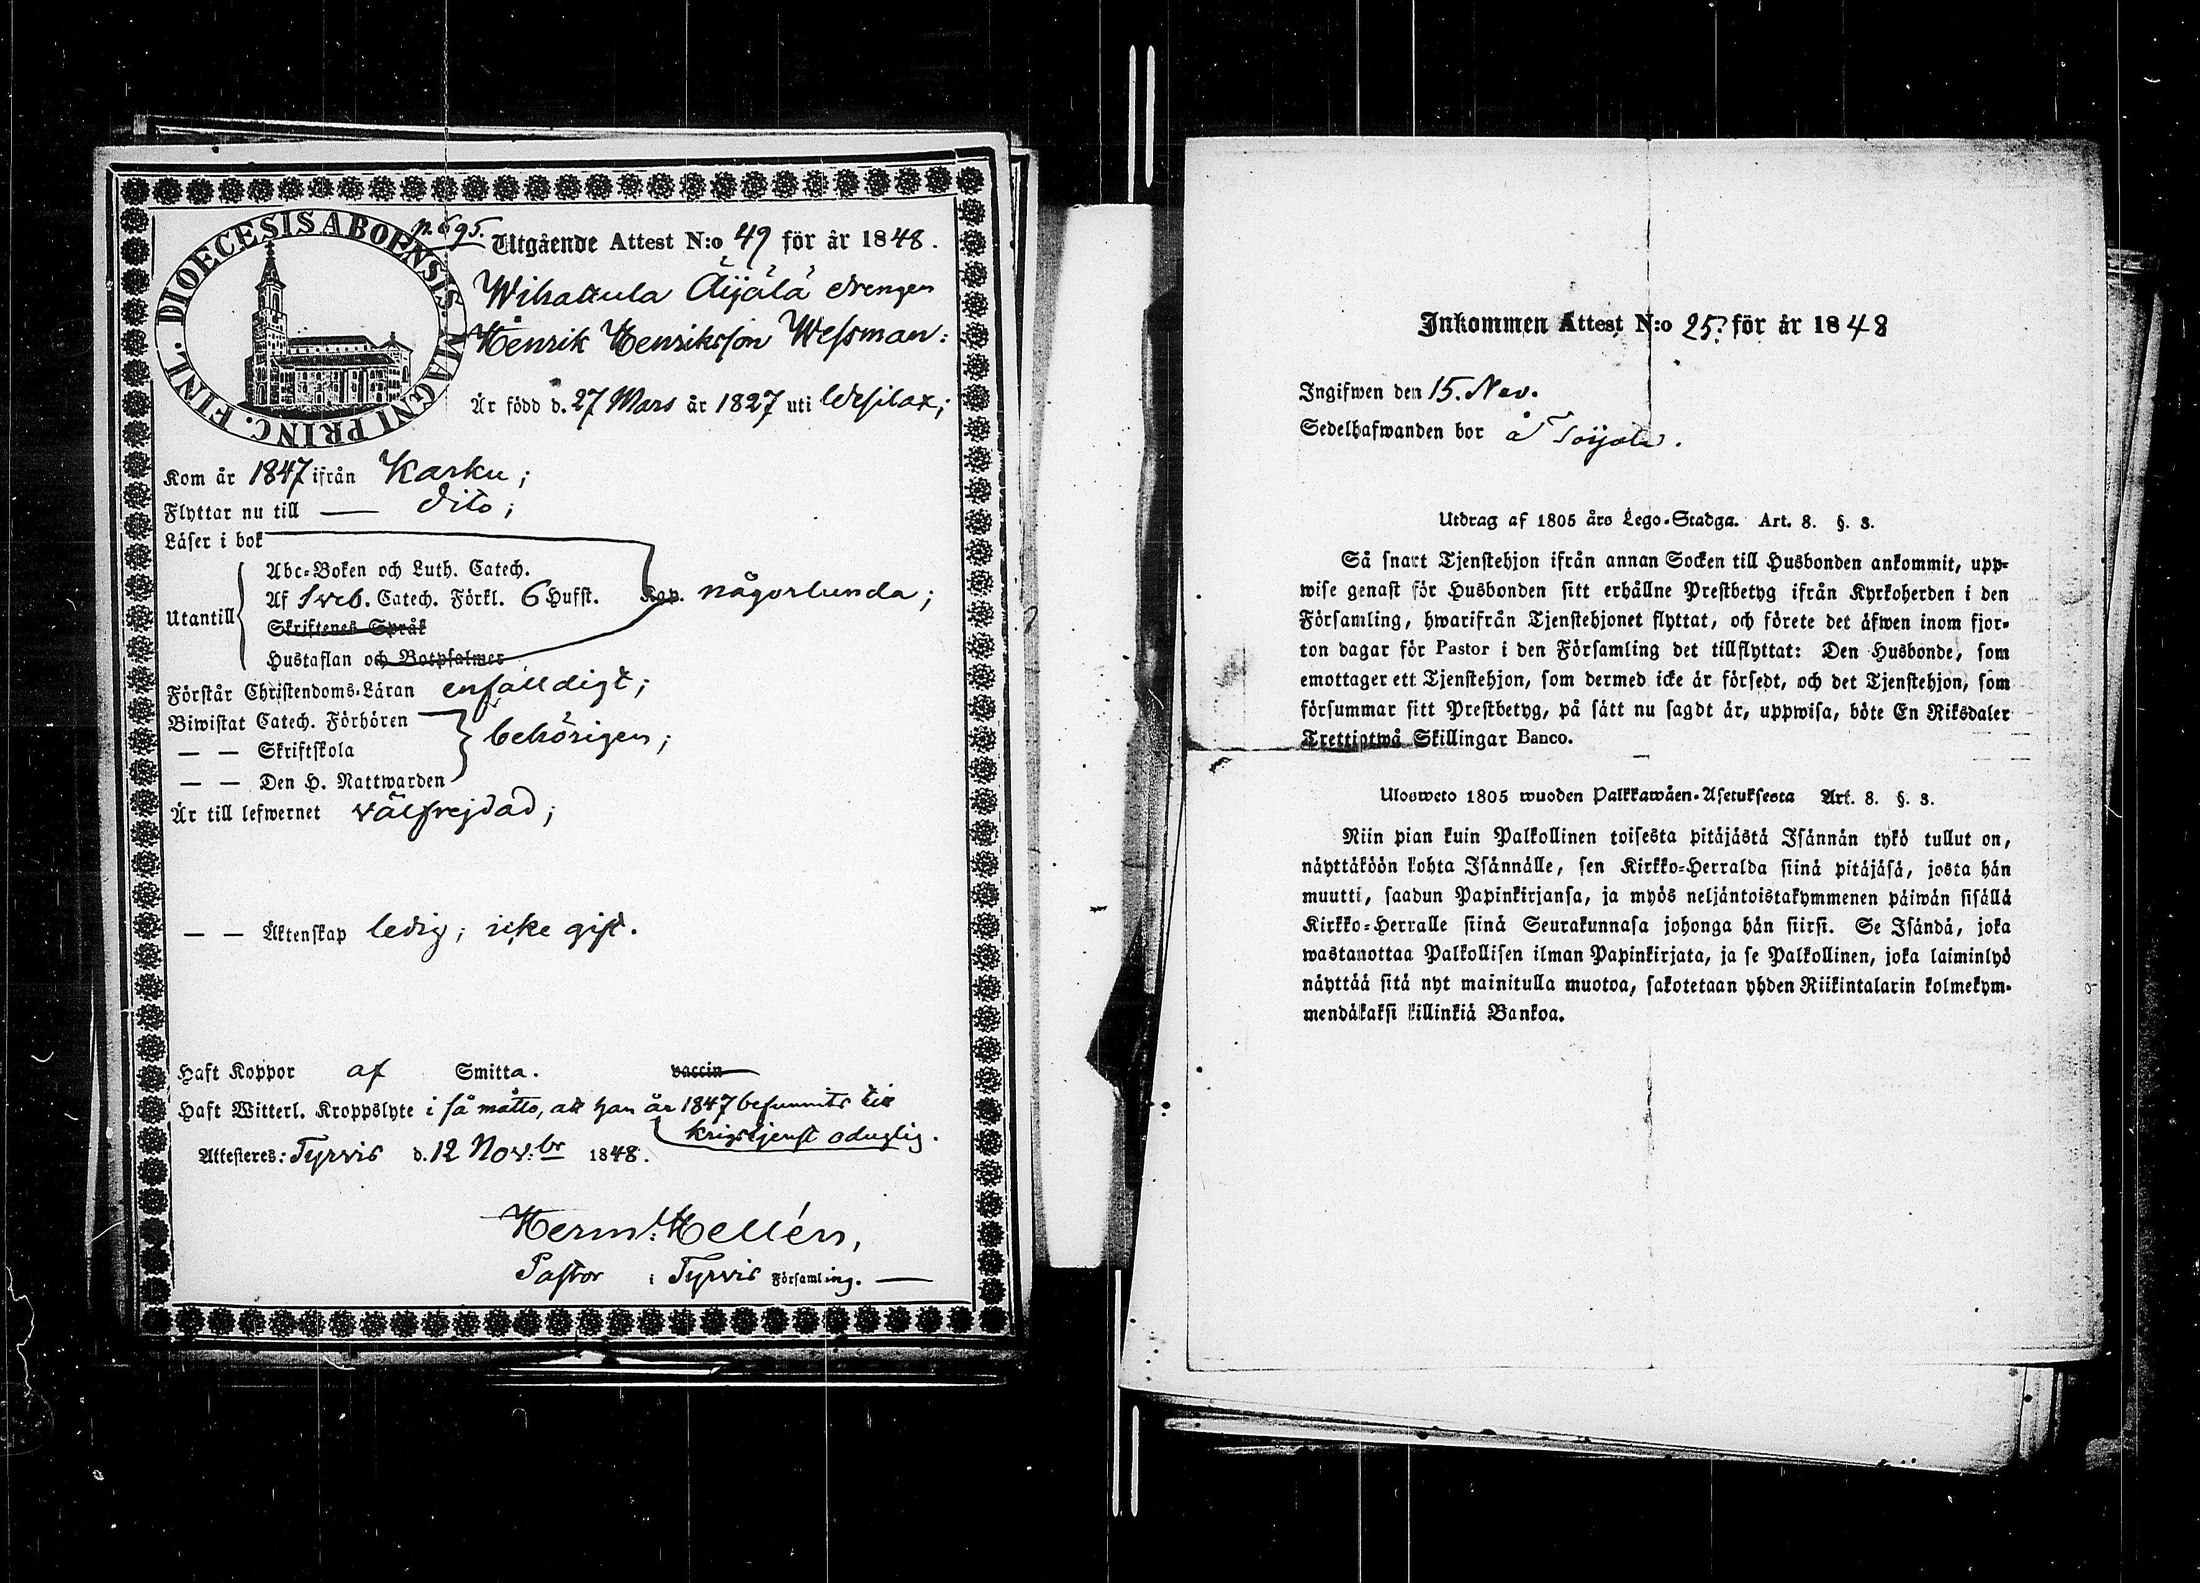 DIOECESIS ABOENSIS MAGNI PRINC. FINL.
p. 695.
Utgående Attest N:o 49 för år 1848.
Äijälä drengen
Henrik Henriksson Wessman:
Är född d. 27 Mars år 1827 uti Wesilax;
Kom år 1847 ifrån Karku;
Flyttar nu till — dito;
Läser i bok
Utantill
Abc-Boken och Luth. Catech.
Af Sveb. Catech. Förkl. 6 Hufst. Kap. någorlunda;
Skriftenes Språk
Hustaflan och Botpsalmer
Förstår Christendoms-Läran enfaldigt;
Biwistat Catech. Förhören
— — Skriftskola
behörigen;
— — Den H. Nattwarden
Är till lefwernet välfrejdad;
— — Äktenskap ledig; icke gift.
Haft Koppor af Smitta. vaccin
Haft Witterl. Kroppslyte i så måtto, att han år 1847 befunnits till
krigstjenst oduglig.
Attesteres: Tyrvis d. 12 Nov:br 1848.
Herm. Hellén,
Pastor i Tyrvis Församling. —
Inkommen Attest N:o 25 för år 1848
Ingifwen den 15. Nov.
Sedelhafwanden bor å
Utdrag af 1805 års Lego-Stadga. Art. 8. §. 3.
Så snart Tjenstehjon ifrån annan Socken till Husbonden ankommit, upp-
wise genast för Husbonden sitt erhållne Prestbetyg ifrån Kyrkoherden i den
Församling, hwarifrån Tjenstehjonet flyttat, och förete det äfwen inom fjor-
ton dagar för Pastor i den Församling det tillflyttat: Den Husbonde, som
emottager ett Tjenstehjon, som dermed icke är försedt, och det Tjenstehjon, som
försummar sitt Prestbetyg, på sätt nu sagdt är, uppwisa, böte En Riksdaler
Trettiotwå Skillingar Banco.
Ulosweto 1805 wuoden Palkkawäen-Asetuksesta Art. 8. §. 3.
Niin pian kuin Palkollinen toisesta pitäjästä Isännän tykö tullut on,
näyttäköön kohta Isännälle, sen Kirkko-Herralda siinä pitäjäsä, josta hän
muutti, saadun Papinkirjansa, ja myös neljäntoistakymmenen päiwän sisällä
Kirkko-Herralle siinä Seurakunnasa johonga hän siirsi. Se Isändä, joka
wastanottaa Palkollisen ilman Papinkirjata, ja se Palkollinen, joka laiminlyö
näyttää sitä nyt mainitulla muotoa, sakotetaan yhden Riikintalarin kolmekym-
mendäkaksi killinkiä Bankoa.